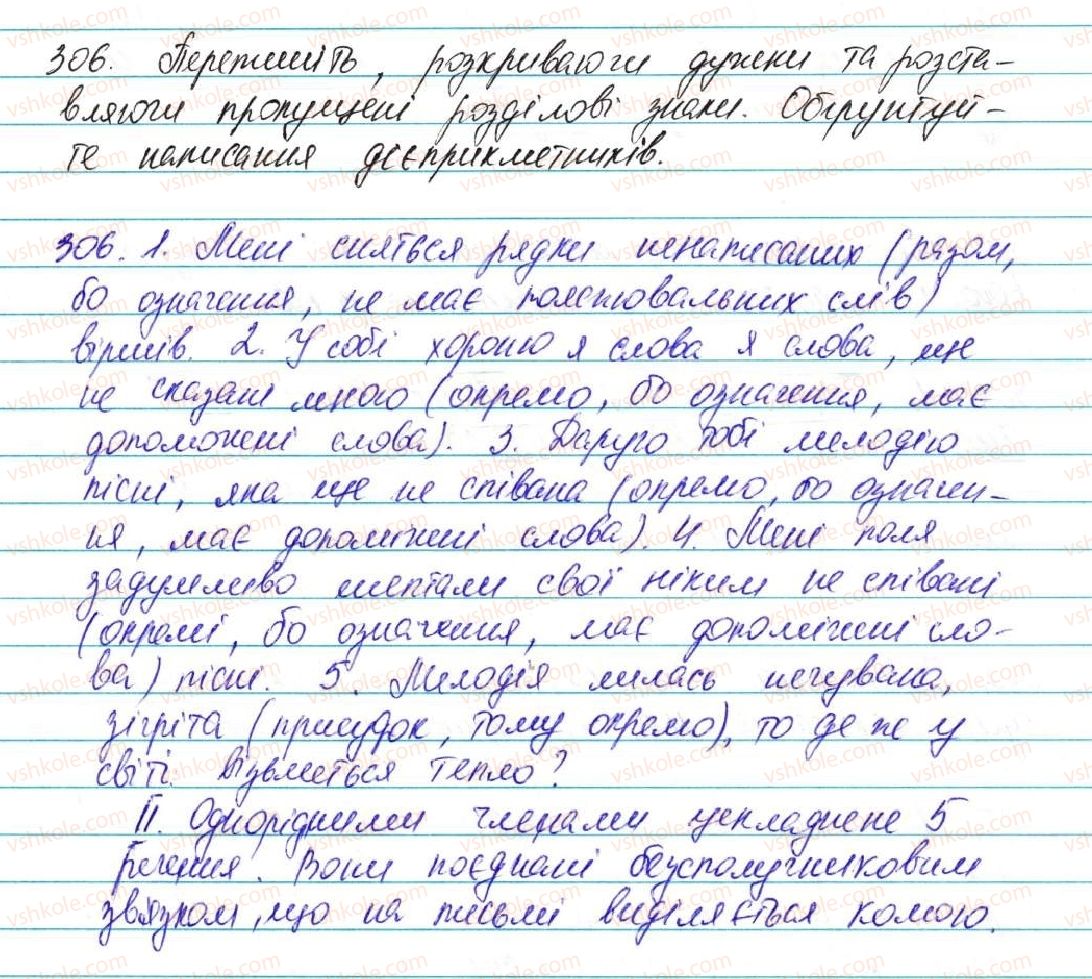 306. Перепишіть, розкриваючи дужки та розста-
вляючи пропущені розділові знаки. Обґрунтуй-
те написання дієприкметників.
306. 1. Мені сняться рядки ненаписаних (разом,
бо означення, не має пояснювальних слів)
віршів. 2. У собі хороню я слова я слова, ще
не сказані мною (окремо, бо означення, має
допоміжні слова). 3. Дарую тобі мелодію
пісні, яка ще не співана (окремо, бо означен-
ня, має допоміжні слова). 4. Мені поля
задумливо шептали свої ніким не співані
(окремі, бо означення, має допоміжні сло-
ва) пісні. 5. Мелодія лилась нечувана,
зігріта (присудок, тому окремо), то де же у
світі візьметься тепло?
ІІ. Однорідними членами ускладнене 5
речення. Вони поєднані безсполучниковим
зв'язком, що на письмі виділяється комою.